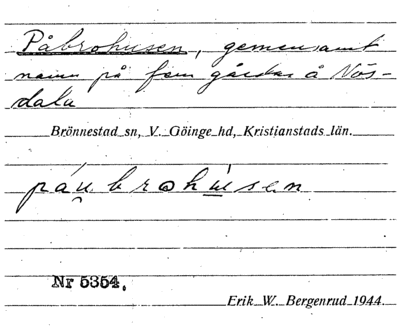 Påbrohusen, gemensamt
namn på fem gårdar å Vös-
dala
Brönnestad sn, V. Göinge hd, Kristianstads län.
páu̯brohu̇sen
Nr 5354.
Erik W. Bergenrud 1944.